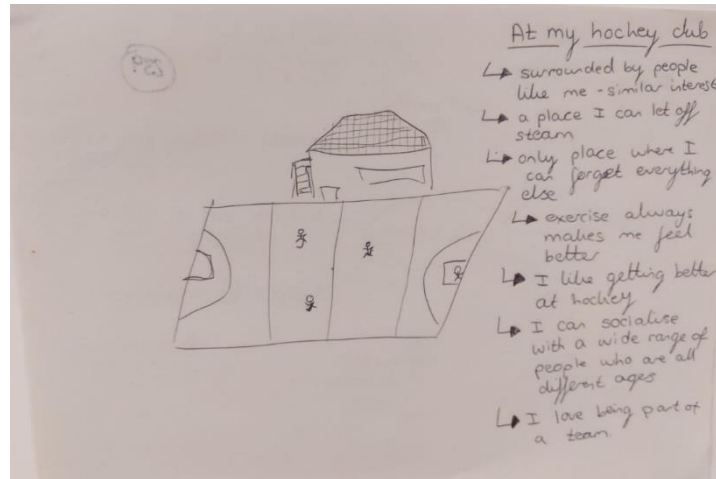 At my hockey club
↳ surrounded by people
like me - similar interest
↳ a place I can let off
steam
↳ only place where I
can forget everything
else
↳ exercise always
makes me feel
better
↳ I like getting better
at hockey
↳ I can socialise
with a wide range of
people who are all
different ages
↳ I love being part of
a team